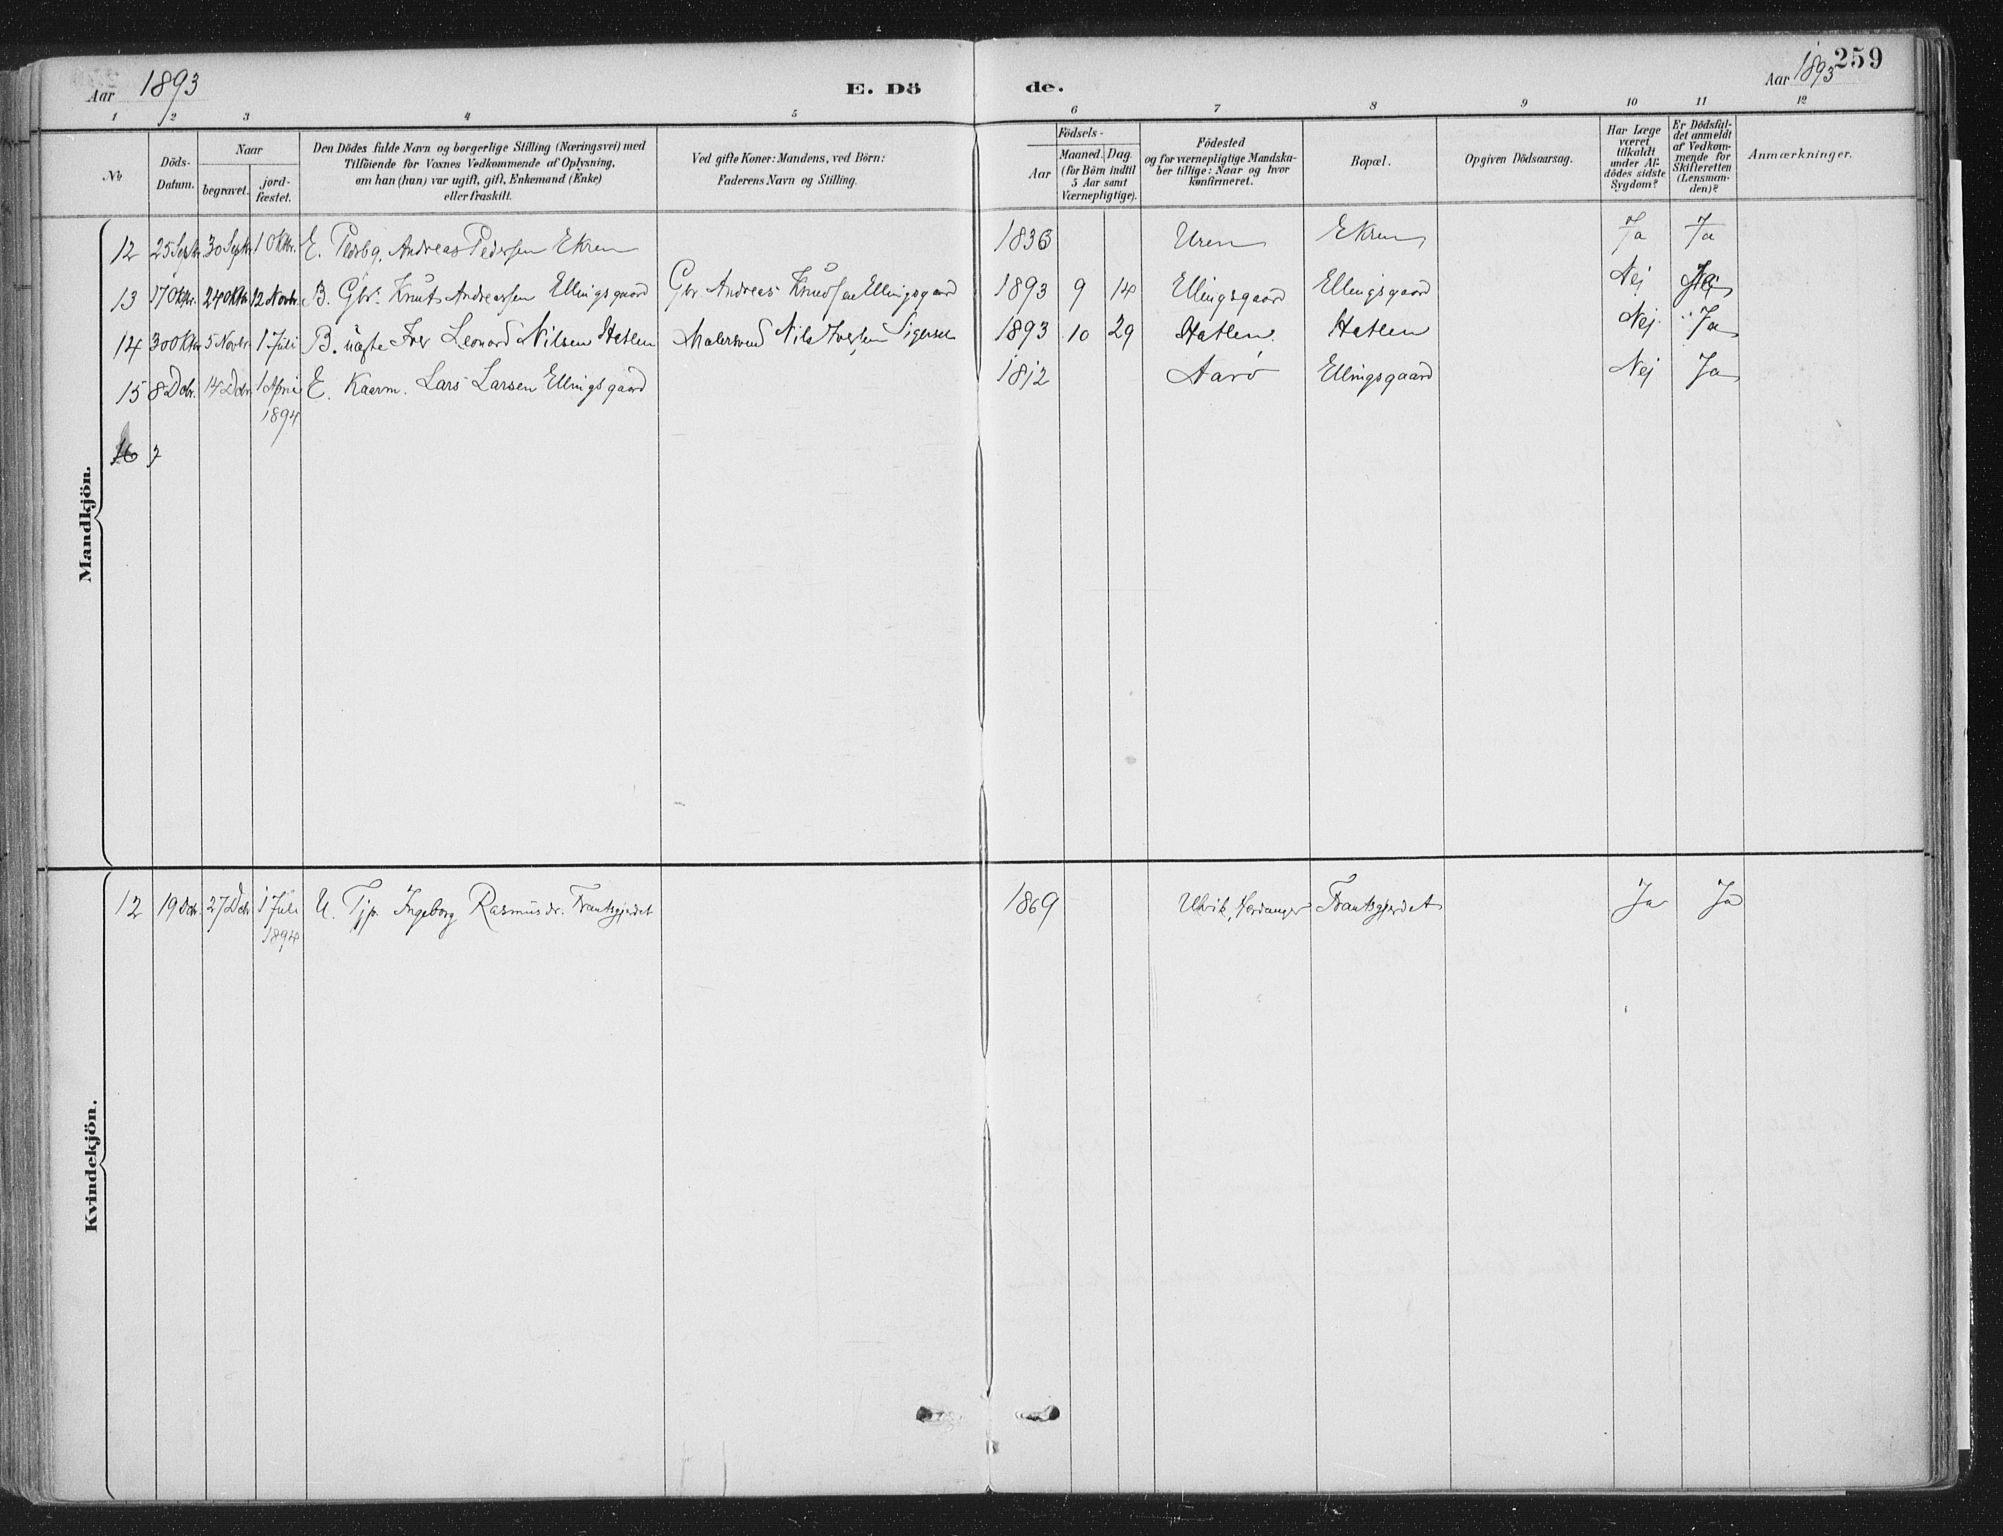 Aar 1893
E. Dö
de.
Aar 1893
259
1 2 3 4 5 6 7 8 9 10 11 12
No
Döds-
Datum.
Naar
begravet.
jord-
fæstet.
Den Dödes fulde Navn og borgerlige Stilling (Næringsvei) med
Tilföiende for Voxnes Vedkommende af Oplysning,
om han (hun) var ugift, gift, Enkemand (Enke)
eller fraskilt.
Ved gifte Koner: Mandens, ved Börn:
Faderens Navn og Stilling.
Födsels-
Aar
Maaned. Dag.
(for Börn indtil
5 Aar samt
Værnepligtige).
Födested
og for værnepligtige Mandska-
ber tillige: Naar og hvor
konfirmeret.
Bopæl.
Opgiven Dödsaarsag.
Har Læge
været
tilkaldt
under Af-
dödes sidste
Sygdom?
Er Dödsfal-
det anmeldt
af Vedkom-
mende for
Skifteretten
(Lensman-
den)?
Anmærkninger.
Mandkjön.
12 25 Septr. 30 Septr. 1 Oktr. E. Andreas Pedersen Ekren 1836 Uren Ekren Ja Ja
13 17 Oktr. 24 Oktr. 12 Novbr. B. Gbr. Knut Andreassen Ellingsgaard Gbr. Andreas Knudsen Ellingsgaard 1893 9 14 Ellingsgaard Ellingsgaard Nej
14 30 Oktr. 5 Novbr. 1 Juli B. uægte Iver Leonard Nilsen Hatlen Malersvend Nils Iversen 1893 10 29 Hatlen Hatlen Nej Ja
15 8 Dcbr. 14 Dcbr. 1 April E. Kaarm. Lars Larsen Ellingsgaard 1812 Aarø Ellingsgaard Nej Ja
1894
16
Kvindekjön.
12 19 Dcbr. 27 Dcbr. 1 Juli U. Tjp. Ingeborg Rasmusdr. Frantsgjerdet 1869 Ulvik, Hardanger Frantsgjerdet Ja Ja
1894